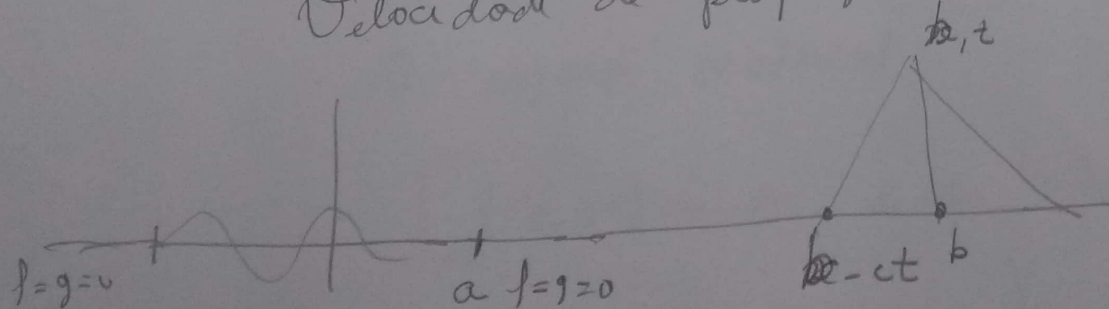 Velocidad de
b, t
f=g=0
a f=g=0
b-ct
b